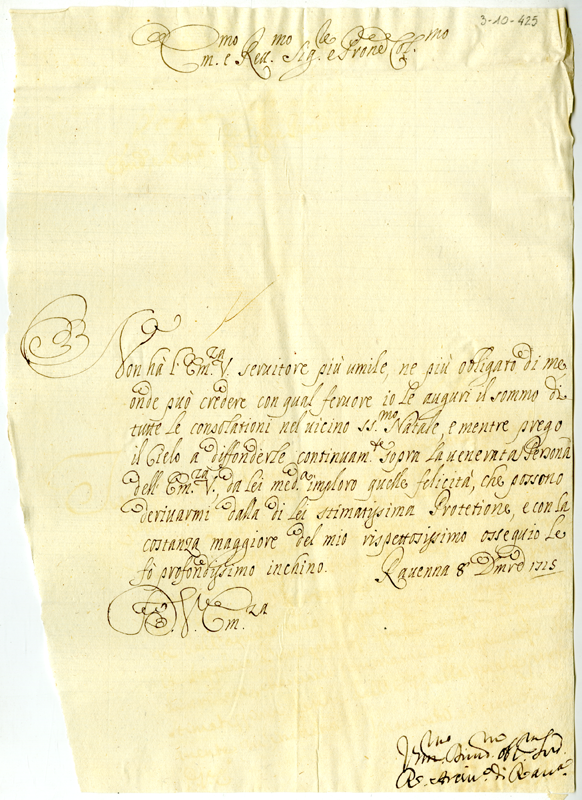 3-10-425
Em.mo e Rev.mo Sig.re e Prone Col.mo
Non hà l'Em.za V. servitore più umile, ne più obligato di me
onde può credere con qual fervore io le auguri il sommo di
tutte le consolationi nel vicino ss.mo Natale, e mentre prego
il Cielo a diffonderle continuam.te sopra la venerata Persona
dell'Em.za V., da lei med.a imploro quelle felicità, che possono
derivarmi dalla di lei stimatissima Protetione, e con la
costanza maggiore del mio rispettosissimo ossequio le
fò profondissimo inchino. Ravenna 8 Dmre 1715
D. V. Em.za
Um.mo obl.mo
Arciv.o di Rav.a